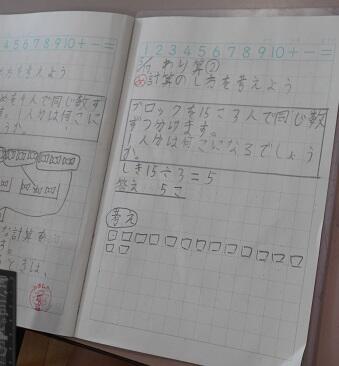 4 5 6 7 8 9 10 + - =
人で同じ数ず
1人分は何こに
な計算を
1 2 3 4 5 6 7 8 9 10 + - =
わり算①
計算のし方を考えよう
ブロックを15こ3人で同じ数
ずつ分けます。
1人分は何こになるでしょう
か。
しき15÷3=5
答え 5こ
考え